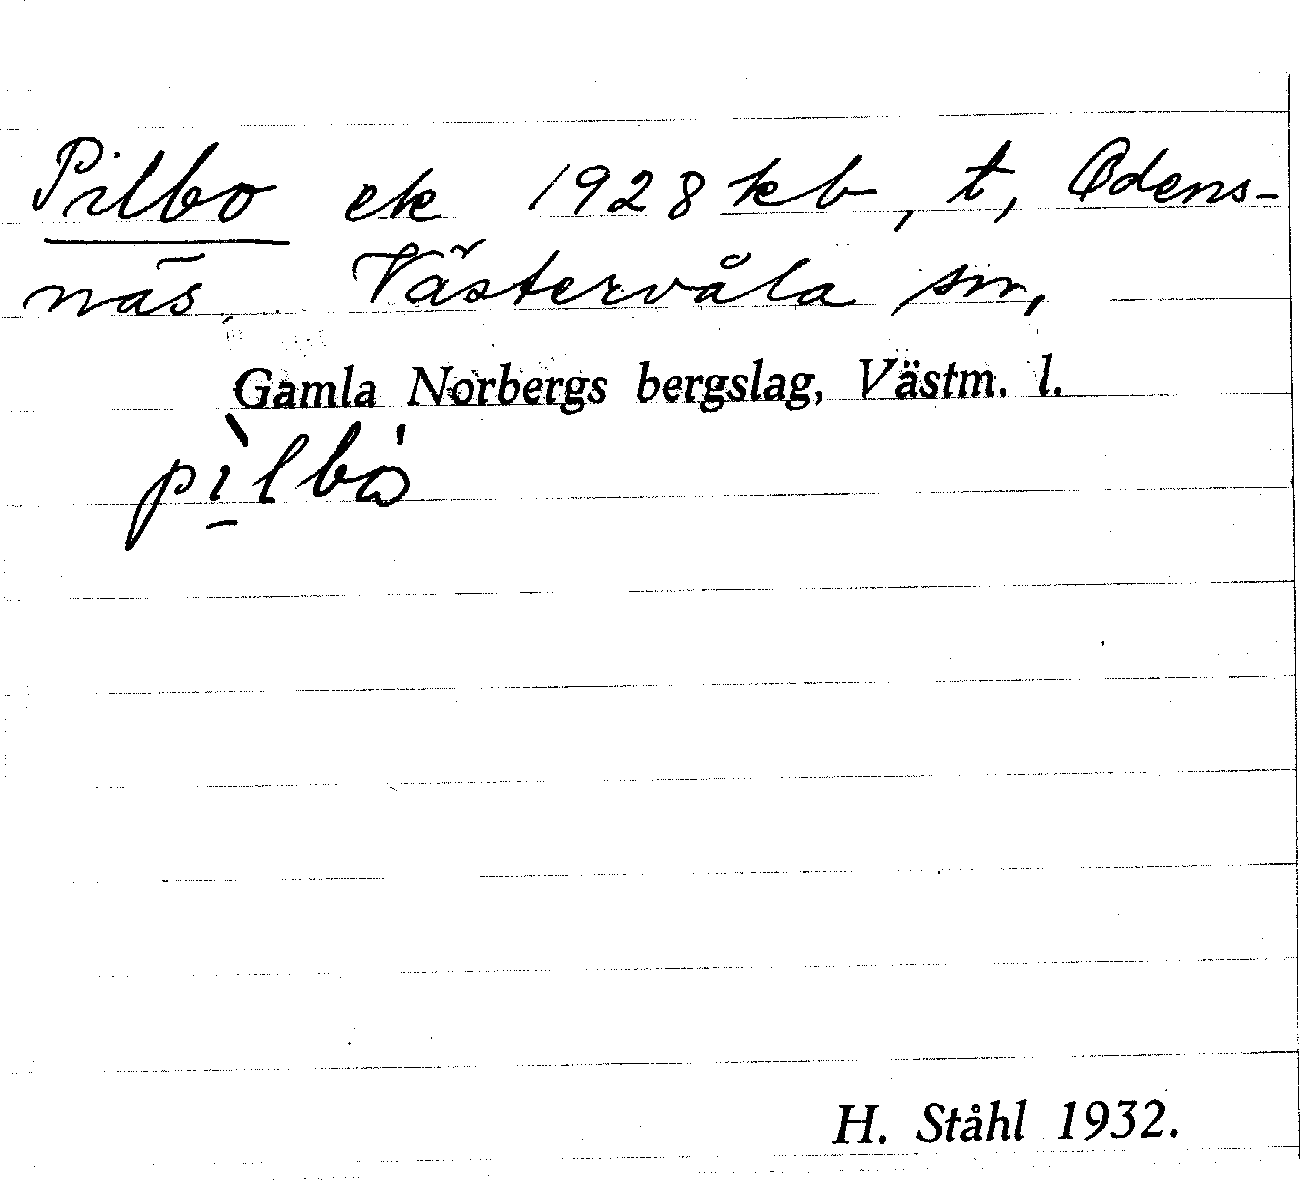 Pilbo ek 1928 kb, t, Odens-
näs, Västervåla sn,
Gamla Norbergs bergslag, Västm. l.
pı̀lbó
H. Ståhl 1932.